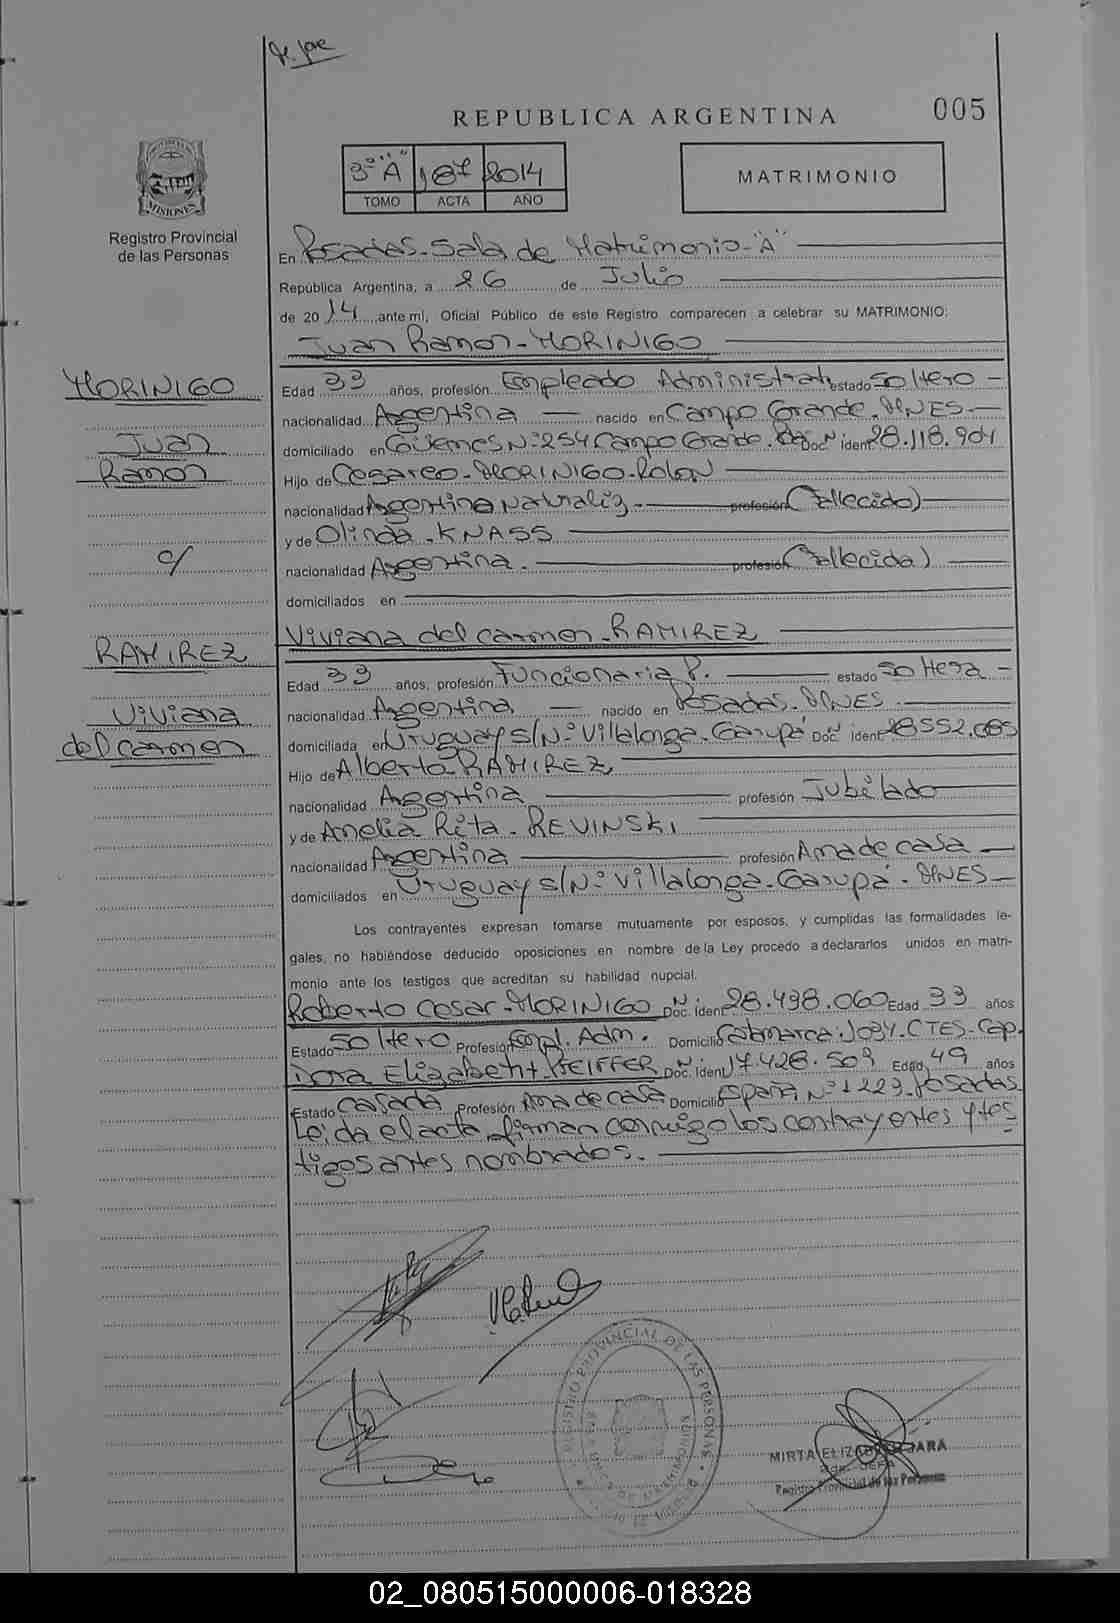 REPUBLICA ARGENTINA 005
3º "A" 187 2014
TOMO ACTA AÑO
MATRIMONIO
MISIONES
Registro Provincial
de las Personas
En Posadas-Sala de Matrimonio-"A"
Republica Argentina, a 26 de Julio
de 2014 ante mi, Oficial Público de este Registro comparecen a celebrar su MATRIMONIO:
Juan Ramon-MORINIGO
MORINIGO
Juan
Ramon
c/
RAMIREZ
Viviana
del carmen
Edad 33 años, profesión Empleado Administrat. estado Soltero
nacionalidad Argentina nacido en Campo Grande. MNES
domiciliado en Güemes Nº 254 Campo Grande. Doc. Nº ident. 28.118.904
Hijo de Cesareo-MORINIGO-Rolon
nacionalidad Argentina Naturaliz. profesión (Fallecido)
y de Olinda. KNASS
nacionalidad Argentina. profesión (Fallecida)
domiciliados en
Viviana del carmen-RAMIREZ
Edad 33 años, profesión Funcionaria P. estado Soltera
nacionalidad Argentina nacido en Posadas. MNES
domiciliada en Uruguay s/Nº Villalonga. Garupá Doc. Nº ident. 28552.085
Hijo de Alberto RAMIREZ
nacionalidad Argentina profesión Jubilado
y de Amelia Rita. REVINSKI
nacionalidad Argentina profesión Ama de casa
domiciliados en Uruguay s/Nº Villalonga. Garupá. MNES
Los contrayentes expresan tomarse mutuamente por esposos, y cumplidas las formalidades le-
gales, no habiéndose deducido oposiciones en nombre de la Ley procedo a declararlos unidos en matri-
monio ante los testigos que acreditan su habilidad nupcial.
Roberto Cesar-MORINIGO Doc. Nº ident. 28.498.060 Edad 33 años
Estado Soltero Profesión Empl. Adm. Domicilio Catamarca: 1034. CTES-Cap.
Dora Elizabeht. PFEIFFER Doc. Nº ident. 17.428.509 Edad 49 años
Estado casada Profesión Ama de casa Domicilio España Nº 1223. Posadas
Leida el acta, firman conmigo los contrayentes y tes
tigos antes nombrados.
REGISTRO PROVINCIAL DE LAS PERSONAS
MIRTA ELIZABETH JARA
Registro Provincial de las Personas
02_080515000006-018328